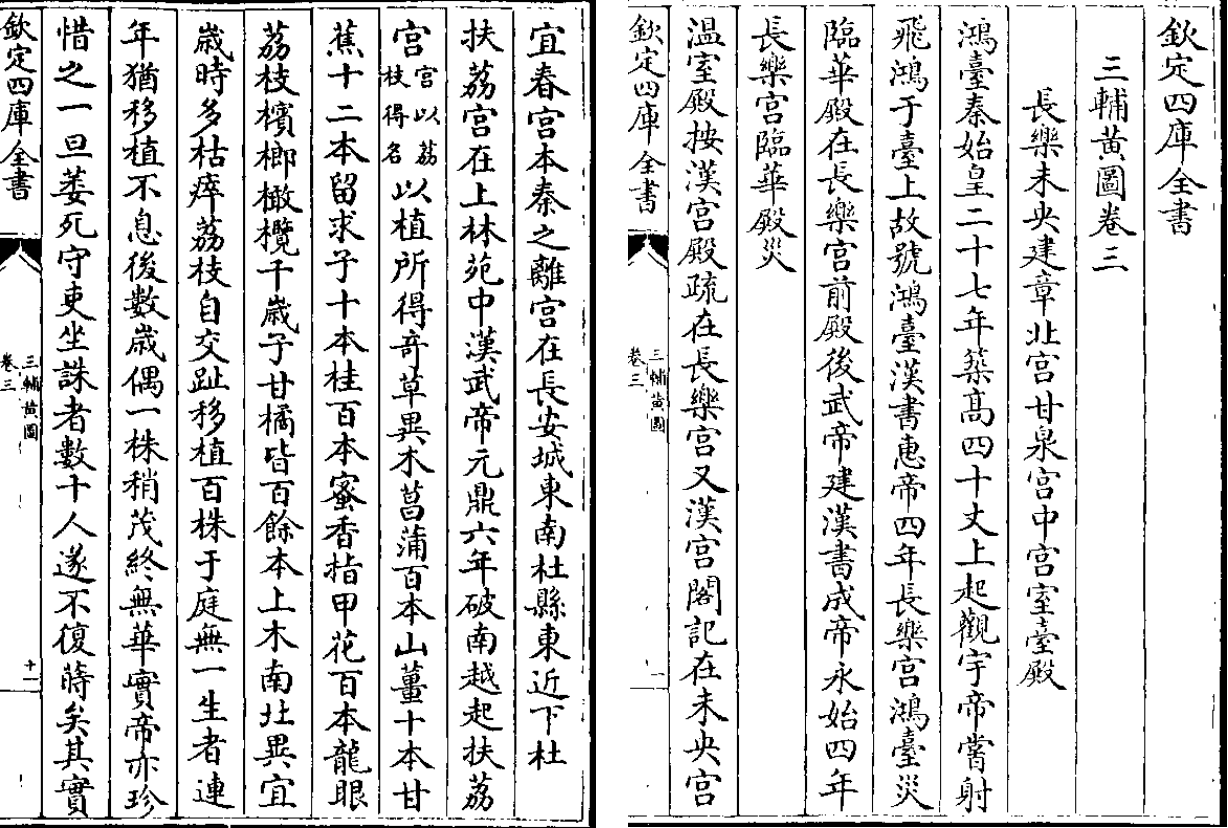 欽定四庫全書
三輔黃圖卷三
長樂未央建章北宮甘泉宮中宮室臺殿
鴻臺秦始皇二十七年築髙四十丈上起觀宇帝嘗射
飛鴻于臺上故號鴻臺漢書惠帝四年長樂宮鴻臺災
臨華殿在長樂宮前殿後武帝建漢書成帝永始四年
長樂宮臨華殿災
温室殿按漢宮殿疏在長樂宮又漢宮閣記在未央宮
欽定四庫全書
三輔黃圖
卷三
一
宜春宮本秦之離宮在長安城東南杜縣東近下杜
扶荔宮在上林苑中漢武帝元鼎六年破南越起扶荔
宮宮以荔枝得名以植所得奇草異木菖蒲百本山薑十本甘
蕉十二本留求子十本桂百本蜜香指甲花百本龍眼
荔枝檳榔橄欖千歳子甘橘皆百餘本上木南北異宜
歳時多枯瘁荔枝自交趾移植百株于庭無一生者連
年猶移植不息後數歳偶一株稍茂終無華實帝亦珍
惜之一旦萎死守吏坐誅者數十人遂不復蒔矣其實
欽定四庫全書
三輔黃圖
卷三
十一